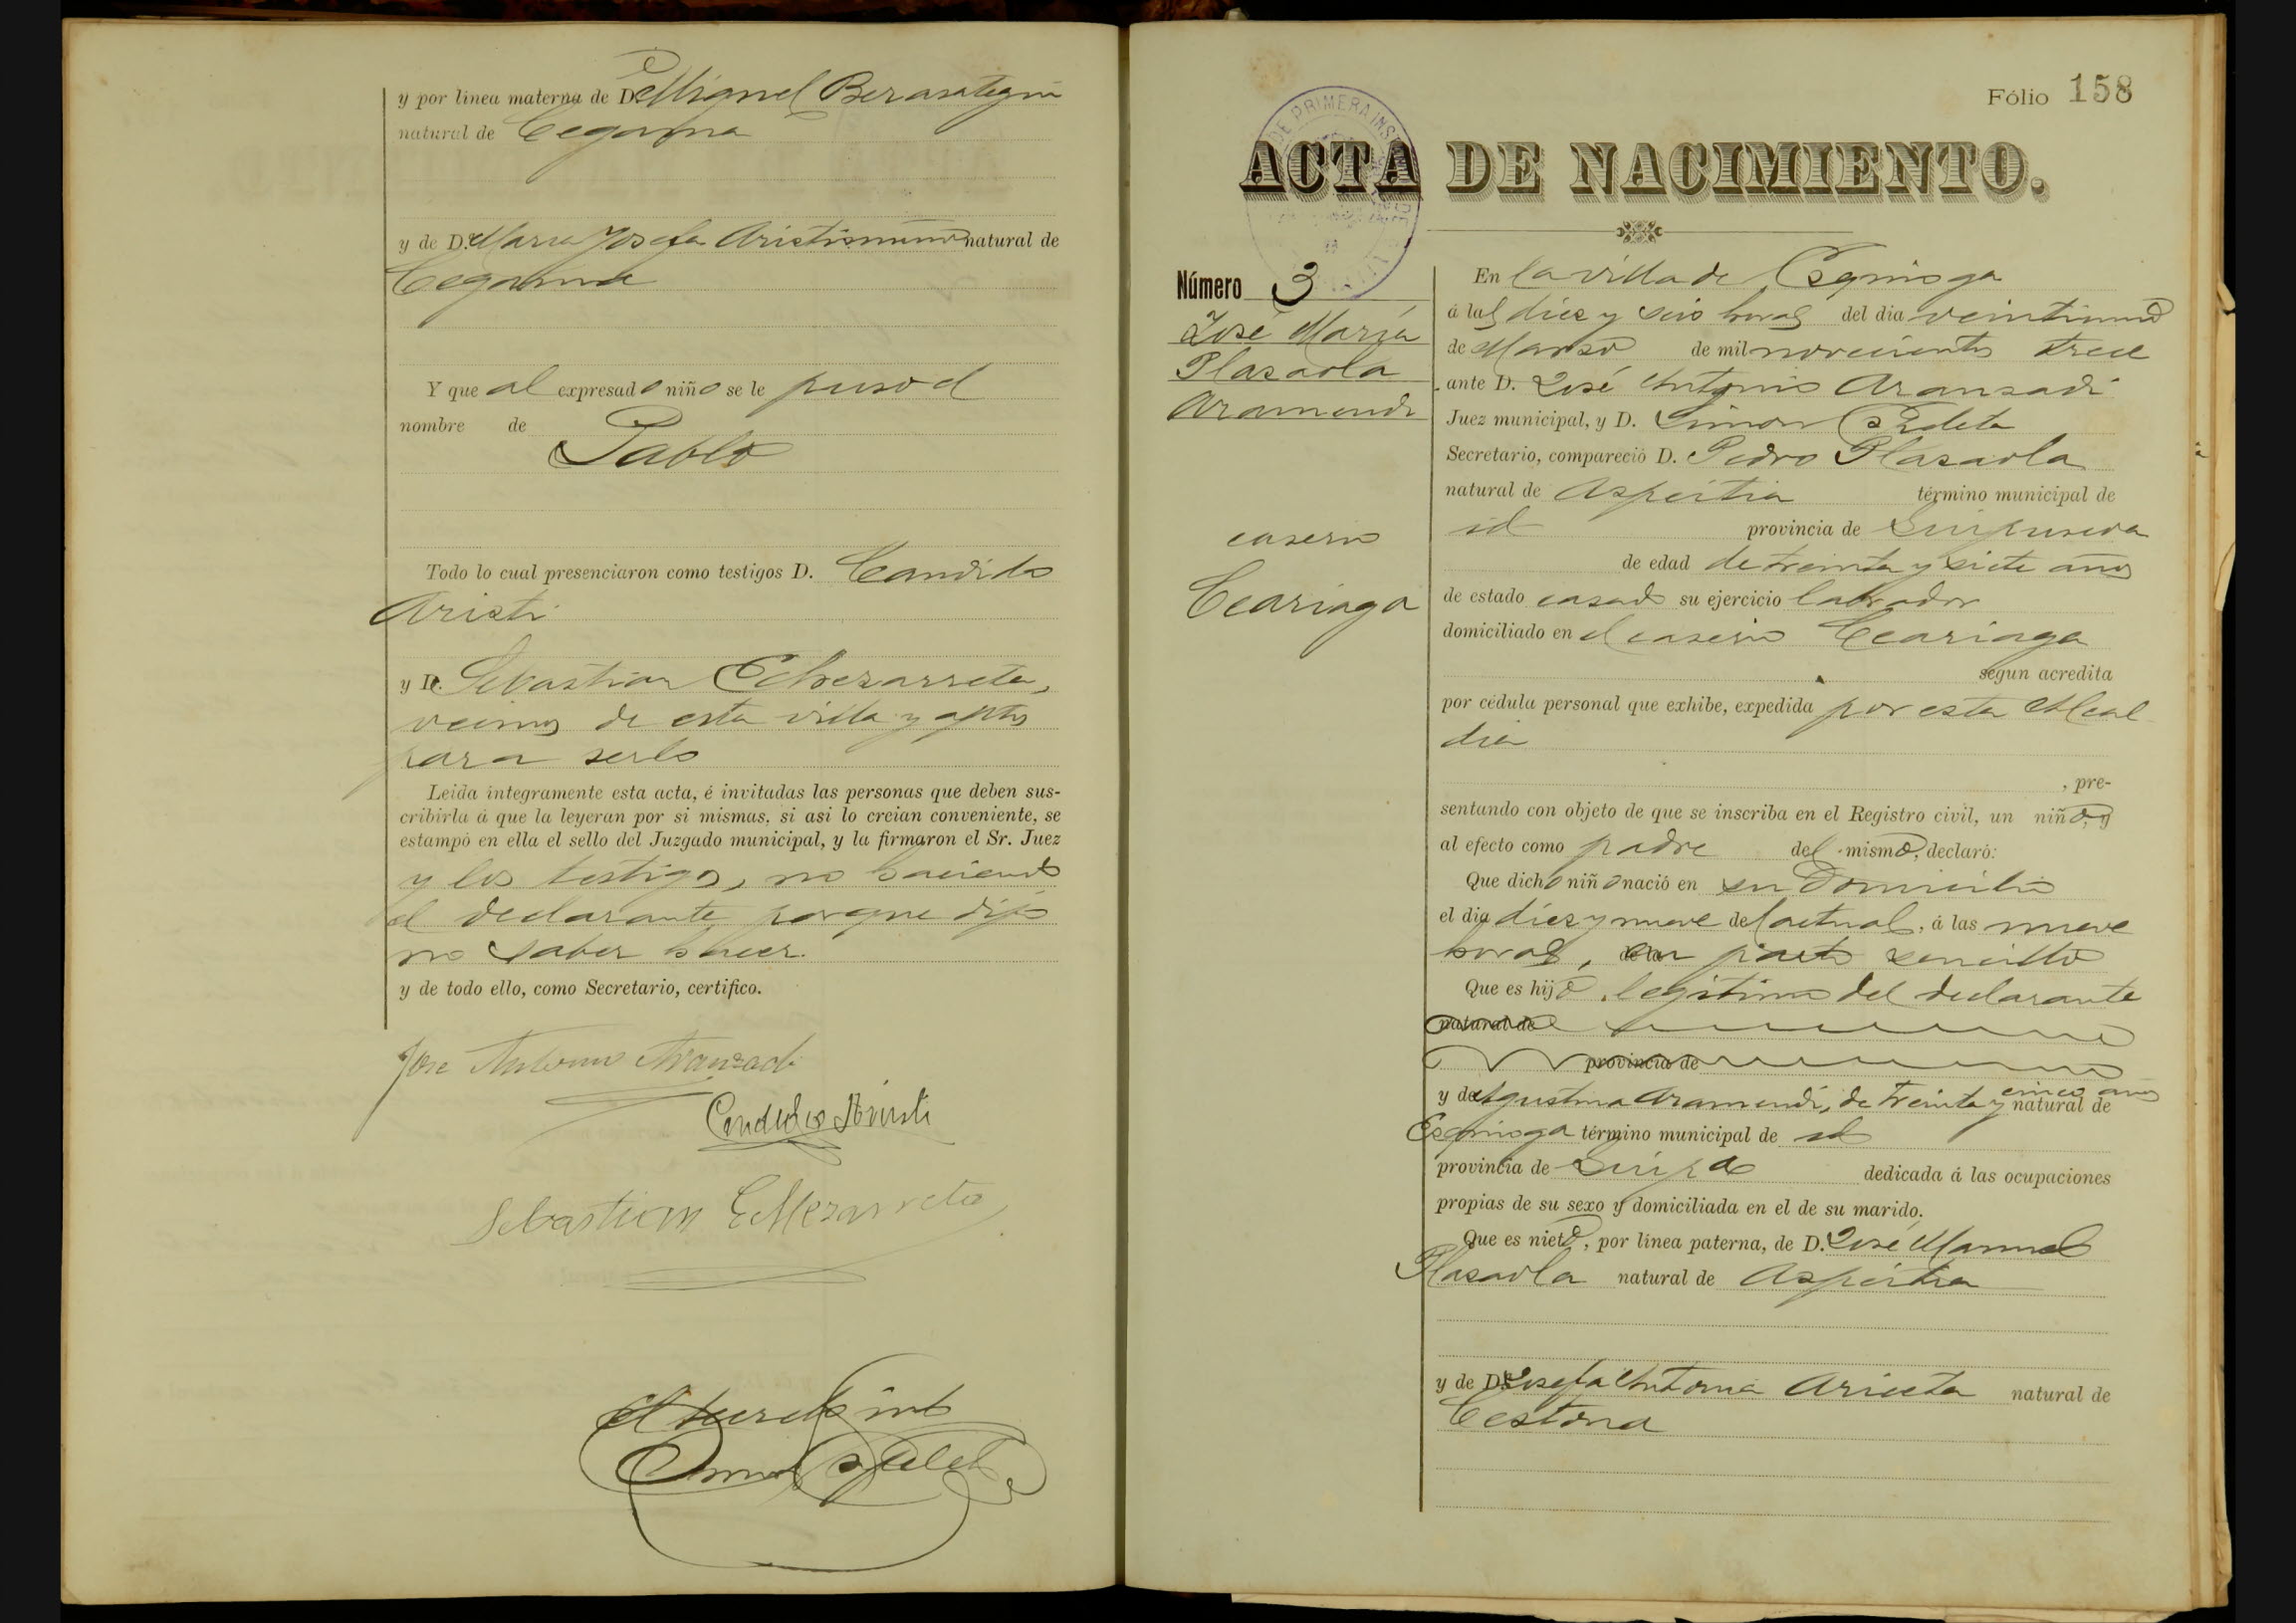 y por línea materna de D. Miguel Berasategui
natural de Cegama
y de D.ª Maria Josefa Aristimuño natural de
Cegama
Y que al expresado niño se le puso el
nombre de
Pablo
Todo lo cual presenciaron como testigos D. Candido
Aristi
y D. Sebastian Echezarreta,
vecinos de esta villa y aptos
para serlo
Leida íntegramente esta acta, é invitadas las personas que deben sus-
cribirla á que la leyeran por si mismas, si asi lo creian conveniente, se
estampó en ella el sello del Juzgado municipal, y la firmaron el Sr. Juez
y los testigos, no haciendo
el declarante porque dijo
no saber hacer.
y de todo ello, como Secretario, certifico.
Jose Antonio Aranzadi
Candido Aristi
Sebastian Echezarreta
Simon
Fólio 158
DE PRIMERA INS
ACTA DE NACIMIENTO.
Número 3
José María
Plazaola
Aramendi
caserio
Ceariaga
En la villa de Esquioga
á las diez y seis horas del dia veintiuno
de Marzo de mil novecientos trece
ante D. José Antonio Aranzadi
Juez municipal, y D. Simon
Secretario, compareció D. Pedro Plazaola
natural de Azpeitia término municipal de
id provincia de Guipuzcoa
de edad de treinta y siete años
de estado casado su ejercicio labrador
domiciliado en el caserio Ceariaga
segun acredita
por cédula personal que exhibe, expedida por esta Alcal
dia
, pre-
sentando con objeto de que se inscriba en el Registro civil, un niño, y
al efecto como padre del mismo, declaró:
Que dicho niño nació en su domicilio
el dia diez y nueve del actual, á las nueve
horas, en parto sencillo
Que es hijo legitimo del declarante
natural de
provincia de
y de Agustina Aramendi, de treinta y cinco años natural de
Esquioga término municipal de id
provincia de Guipa dedicada á las ocupaciones
propias de su sexo y domiciliada en el de su marido.
Que es nieto, por línea paterna, de D. José Manuel
Plazaola natural de Azpeitia
y de D.ª Josefa Antonia Arieeta natural de
Cestona